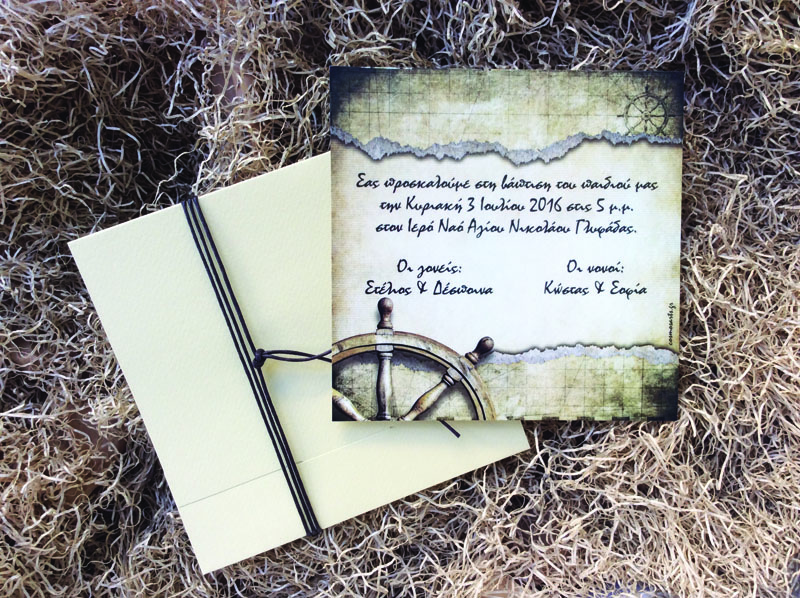 Σας προσκαλούμε στη βάπτιση του παιδιού μας
την Κυριακή 3 Ιουλίου 2016 στις 5 μ.μ.
στον Ιερό Ναό Αγίου Νικολάου Γλυφάδας.
Οι γονείς:
Στέλιος & Δέσποινα
Οι νονοί:
Κώστας & Σοφία